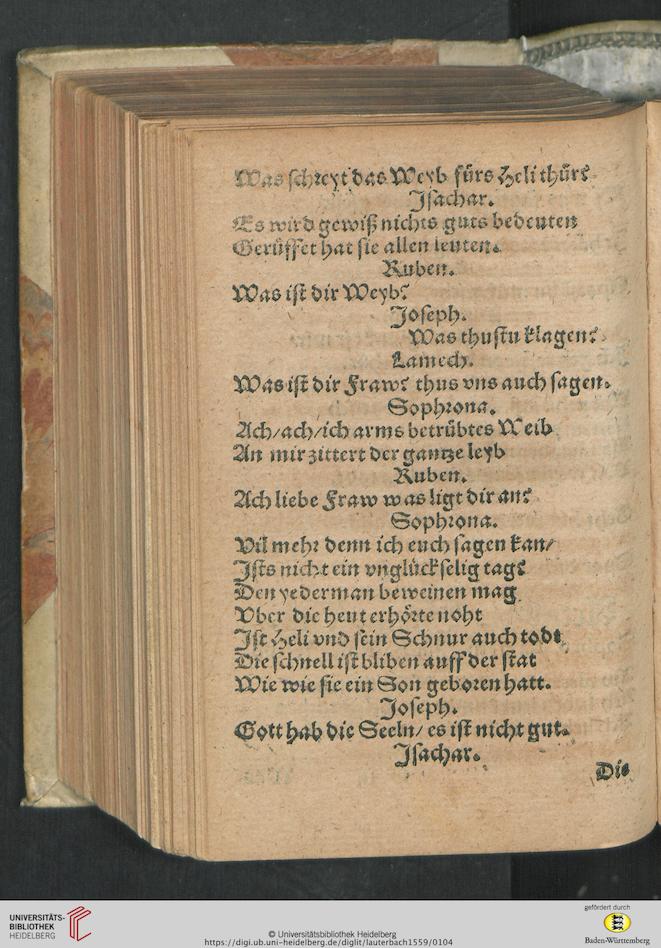 Was schreyt das Weyb fürs Heli thür?
Isachar.
Es wird gewiß nichts guts bedeuten
Gerüffet hat sie allen leuten.
Ruben.
Was ist dir Weyb?
Joseph.
Was thustu klagen?
Lamech.
Was ist dir Fraw? thus vns auch sagen.
Sophrona.
Ach/ach/ich arms betrübtes Weib
An mir zittert der gantze leyb
Ruben.
Ach liebe Fraw was ligt dir an?
Sophrona.
Vil mehr denn ich euch sagen kan/
Ists nicht ein vnglückselig tag?
Den yederman beweinen mag
Vber die heut erhörte noht
Ist Heli vnd sein Schnur auch todt
Die schnell ist bliben auff der stat
Wie wie sie ein Son geboren hatt.
Joseph.
Gott hab die Seeln/ es ist nicht gut.
Isachar.
Die
UNIVERSITÄTS-
BIBLIOTHEK
HEIDELBERG
© Universitätsbibliothek Heidelberg
https://digi.ub.uni-heidelberg.de/diglit/lauterbach1559/0104
gefördert durch
Baden-Württemberg